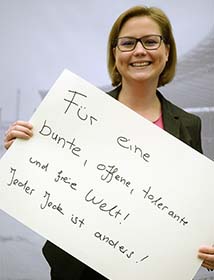 Für eine
bunte, offene, tolerante
und freie Welt!
Jeder Jeck ist anders!